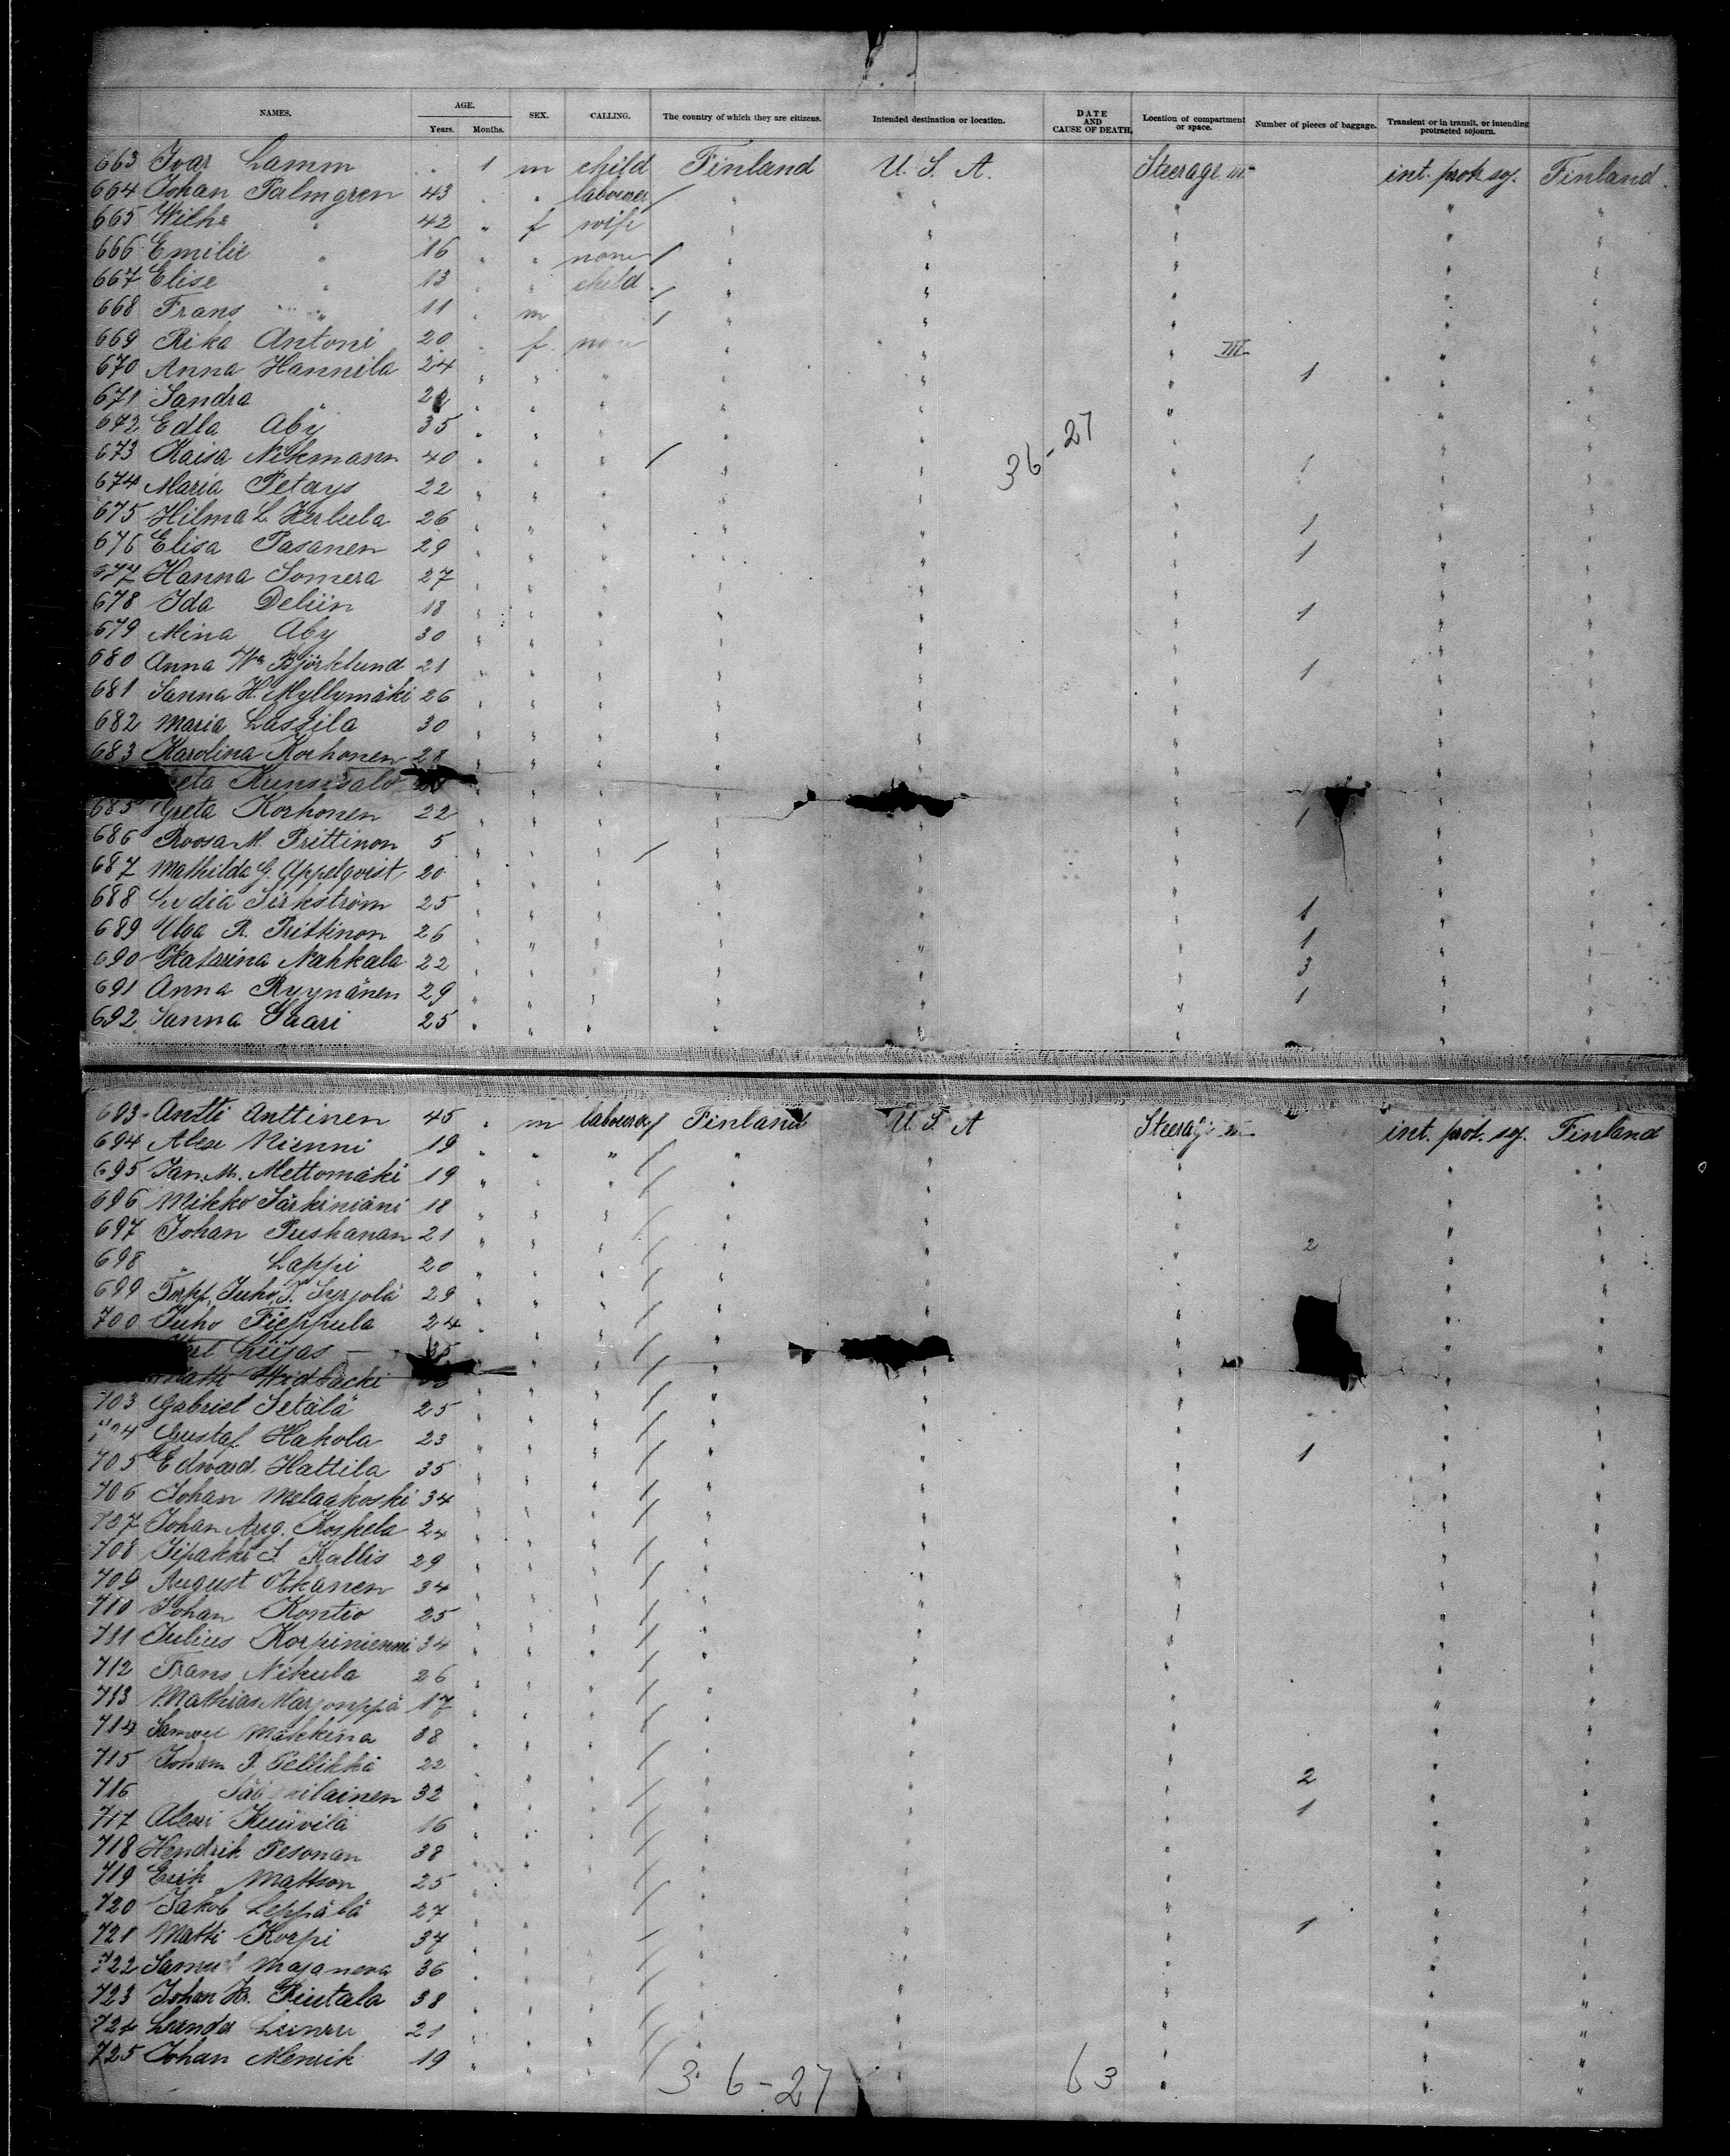 NAMES. AGE. Years. Months. SEX. CALLING. The country of which they are citizens. Intended destination or location. DATE AND CAUSE OF DEATH. Location of compartment or space. Number of pieces of baggage. Transient or in transit, or intending protracted sojourn.
663 Ivar Lamm . 1 m child Finland U. S. A. Steerage int. prot. soj. Finland.
664 Johan Palmgren 43 " " labourer " " " " "
665 Wilh " 42 " f wife " " " " "
666 Emilie " 16 " " none " " " " "
667 Elise " 13 " " child " " " " "
668 Frans " 11 " m " " " " "
669 Rika Antoni 20 " f none " " " III " "
670 Anna Hannila 24 " " " " " " 1 " "
671 Sandra " " " " " " " " "
672 Edla Aby 35 " " " " " " " "
36-27
673 Kaisa Nikmann 40 " " " " " " 1 " "
674 Maria Petays 22 " " " " " " " "
675 Hilma L. 26 " " " " " " 1 " "
676 Elisa Pasanen 29 " " " " " " 1 " "
677 Hanna Somera 27 " " " " " " " "
678 Ida Deliin 18 " " " " " " 1 " "
679 Mina Aby 30 " " " " " " " "
680 Anna Björklund 21 " " " " " " 1 " "
681 Sanna H. Myllymäki 26 " " " " " " " "
682 Maria Lassila 30 " " " " " " " "
683 Karolina Korhonen 28 " " " " " " " "
eta Kunsisalo " " " " " " " "
685 Greta Korhonen 22 " " " " " " 1 " "
686 Roosa M. Prittinon 5 " " " " " " " "
687 Mathilda G. Appelqvist 20 " " " " " " " "
688 Lydia Sirkström 25 " " " " " " 1 " "
689 R. Prittinon 26 " " " " " " 1 " "
690 Katarina Nahkala 22 " " " " " " 3 " "
691 Anna Ryynänen 29 " " " " " " 1 " "
692 Sanna Saari 25 " " " " " " " "
693 Antti Anttinen 45 " m labourer Finland U. S. A Steerage int. prot. soj. Finland
694 Alex Nienni 19 " " " " " " " "
695 Jan M. Mettomäki 19 " " " " " " " "
696 Mikko Särkiniäni 18 " " " " " " " "
697 Johan Pushanan 21 " " " " " " 2 " "
698 " Lappi 20 " " " " " " " "
699 Juho J. Syrjolä 29 " " " " " " " "
700 Juho Fieppula 24 " " " " " " " "
Liijas 35 " " " " " " " "
Matti Widbacki " " " " " " " "
703 Gabriel Setälä 25 " " " " " " " "
704 Gustaf Hakola 23 " " " " " " " "
705 Edward Hattila 35 " " " " " " 1 " "
706 Johan Melaakoski 34 " " " " " " " "
707 Johan Aug. Koskela 24 " " " " " " " "
708 Sipakki S. Kallis 29 " " " " " " " "
709 August Otkanen 34 " " " " " " " "
710 Johan Kontio 25 " " " " " " " "
711 Julius Korpinienni 34 " " " " " " " "
712 Frans Nikula 26 " " " " " " " "
713 Mathias Märjonppä 17 " " " " " " " "
714 Samuel Mäkkina 38 " " " " " " " "
715 Johan P. Pellikka 22 " " " " " " " "
716 32 " " " " " " 2 " "
717 Alexi Kuivila 16 " " " " " " 1 " "
718 Hendrik Pesonan 38 " " " " " " " "
719 Erik Mattson 25 " " " " " " " "
720 Jakob Leppälä 27 " " " " " " " "
721 Matti Korpi 37 " " " " " " 1 " "
722 Samuel Majaneva 36 " " " " " " " "
723 Johan Kr. Rintala 38 " " " " " " " "
724 21 " " " " " " " "
725 Johan Menrik 19 " " " " " " " "
36-27 63